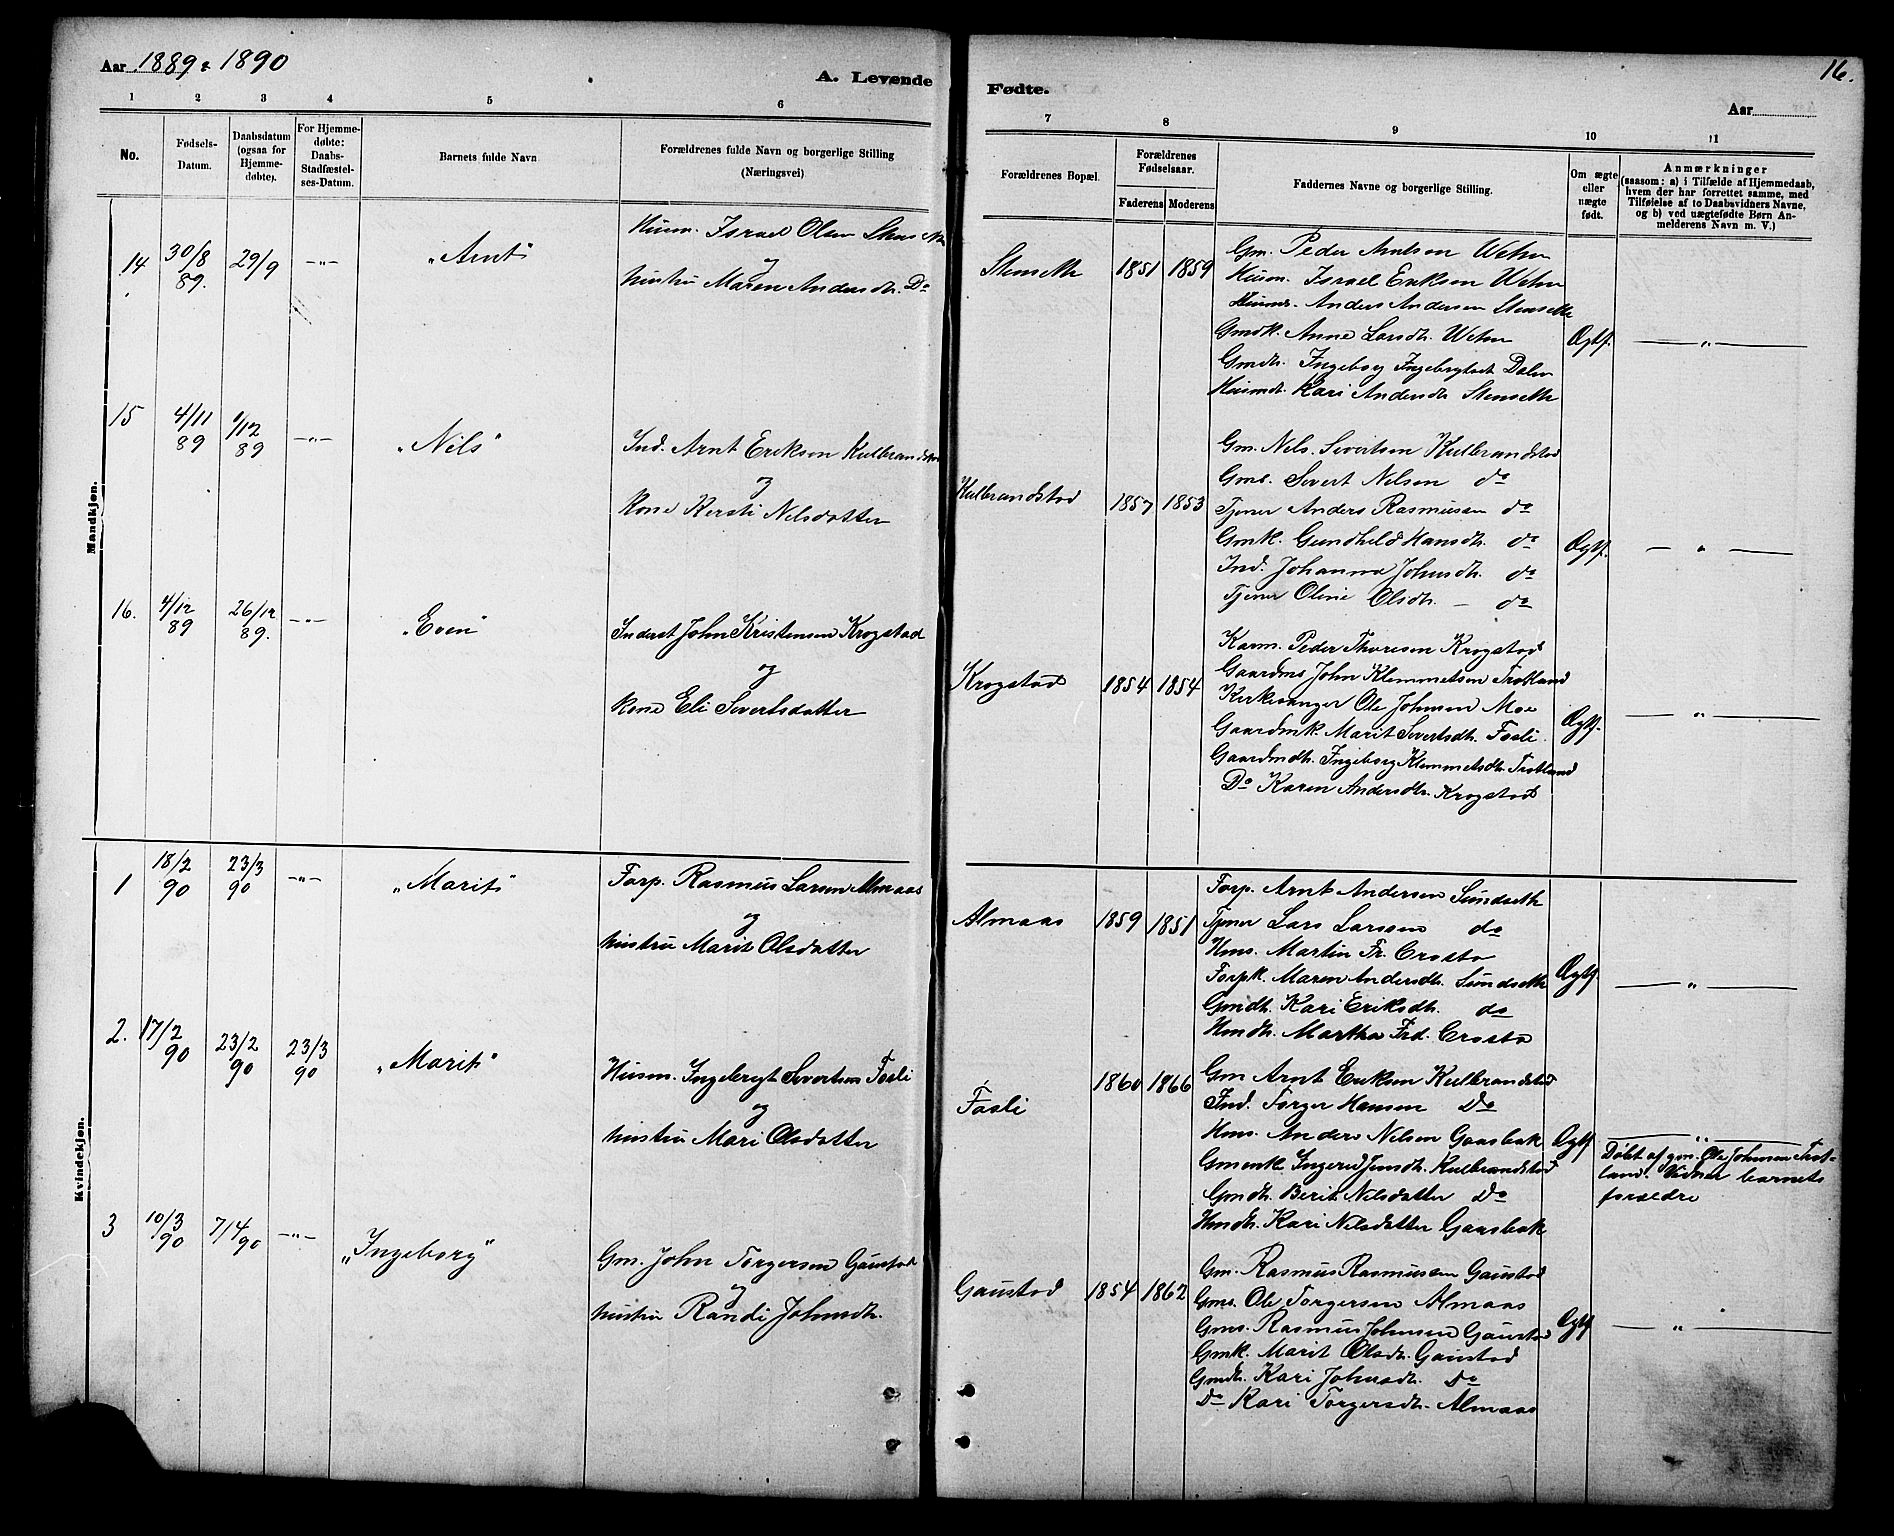 Aar 1889 & 1890
A. Levende
Fødte.
16.
Aar
1 2 3 4 5 6 7 8 9 10 11
No.
Fødsels-
Datum.
Daabsdatum
(ogsaa for
Hjemme-
døbte).
For Hjemme-
døbte:
Daabs-
Stadfæstel-
ses-Datum.
Barnets fulde Navn
Forældrenes fulde Navn og borgerlige Stilling
(Næringsvei)
Forældrenes Bopæl.
Forældrenes
Fødselsaar.
Faderens Moderens
Faddernes Navne og borgerlige Stilling.
Om ægte
eller
uægte
født.
Anmærkninger
(saasom: a) i Tilfælde af Hjemmedaab,
hvem der har forrettet samme, med
Tilføielse af to Daabsvidners Navne,
og b) ved uægtefødte Børn An-
melderens Navn m. V.)
Mandkjøn.
14 30/8 89. 29/9 —"— "Arnt"
Husm. Israel Olsen Stenseth
og
hustru Maren Andersdt. Do
Stenseth 1851 1859
Gm. Peder Arntsen
Husm. Israel Eriksen
Husms. Anders Andersen Stenseth
Gmdk. Anne Larsdt.
Gmdt. Ingeborg Ingebrigtsdt Dalen
Husmdt. Kari Andersdt Stenseth
Ægtf. —"—
15 4/11 89 1/12 89 —"— "Nils"
Ind. Arnt Eriksen Kulbrandstad
og
kone Kersti Nilsdatter
Kulbrandstad 1857 1853
Gm. Nels. Sivertsen Kulbrandstad
Gms. Sivert Nelsen do
Tjener Anders Rasmussen do
Gmk. Gundhild Hansdt. do
Ind. Johanna Johnsdt. do
Tjener Oline Olsdt. — do
Ægtf. —"—
16. 4/12 89 26/12 89. —"— "Even"
Inderst John Kristensen Krogstad
og
kone Eli Sivertsdatter
Krogstad 1854 1854
Karm. Peder Thoresen Krogstad
Gaardms John Klemmetsen Trotland
Kirkesanger Ole Johnsen Moe
Gaardmk. Marit Sivertsdt. Fosli.
Gaardmdt. Ingeborg Klemmetsdt. Trotland
Do Karen Andersdt. Krogstad
Ægtf. —"—
Kvindekjøn.
1 18/2 90 23/3 90 —"— "Marit"
Forp. Rasmus Larsen Almaas
og
hustru Marit Olsdatter
Almaas 1859 1851
Forp. Arnt Andersen Sundseth
Tjener Lars Larsen do
Hms. Martin Fr. Crosto
Forpk. Maren Andersdt. Sundseth
Gmdt. Kari Eriksdt. do
Hmdt. Martha Frd. Crosto
Ægtf. —"—
2. 17/2 90 23/2 90 23/3 90 "Marit"
Husm. Ingebrigt Sivertsen Fosli
og
hustru Mari Olsdatter
Fosli 1860 1866
Gm Arnt Eriksen Kulbrandstad
Ind. Torger Hansen Do
Hms. Anders Nilsen Gaasbak
Gmenk. Ingerid Jensdt. Kulbrandstad
Gmdt. Berit Nilsdatter Do
Hmdt. Kari Nilsdatter Gaasbak
Ægtf —"—
Døbt af gm. Ole Johnsen Trot-
land. Vidner barnets
forældre
3 10/3 90 7/4 90 —"— "Ingeborg"
Gm. John Torgersen Gaustad
og
hustru Randi Johnsdt.
Gaustad 1854 1862
Gm. Rasmus Rasmussen Gaustad
Gms. Ole Torgersen Almaas
Gms. Rasmus Johnsen Gaustad
Gmk. Marit Olsdt. Gaustad
Gmdt. Kari Johnsdt. Do
Do Kari Torgersdt. Almaas
Ægtf —"—